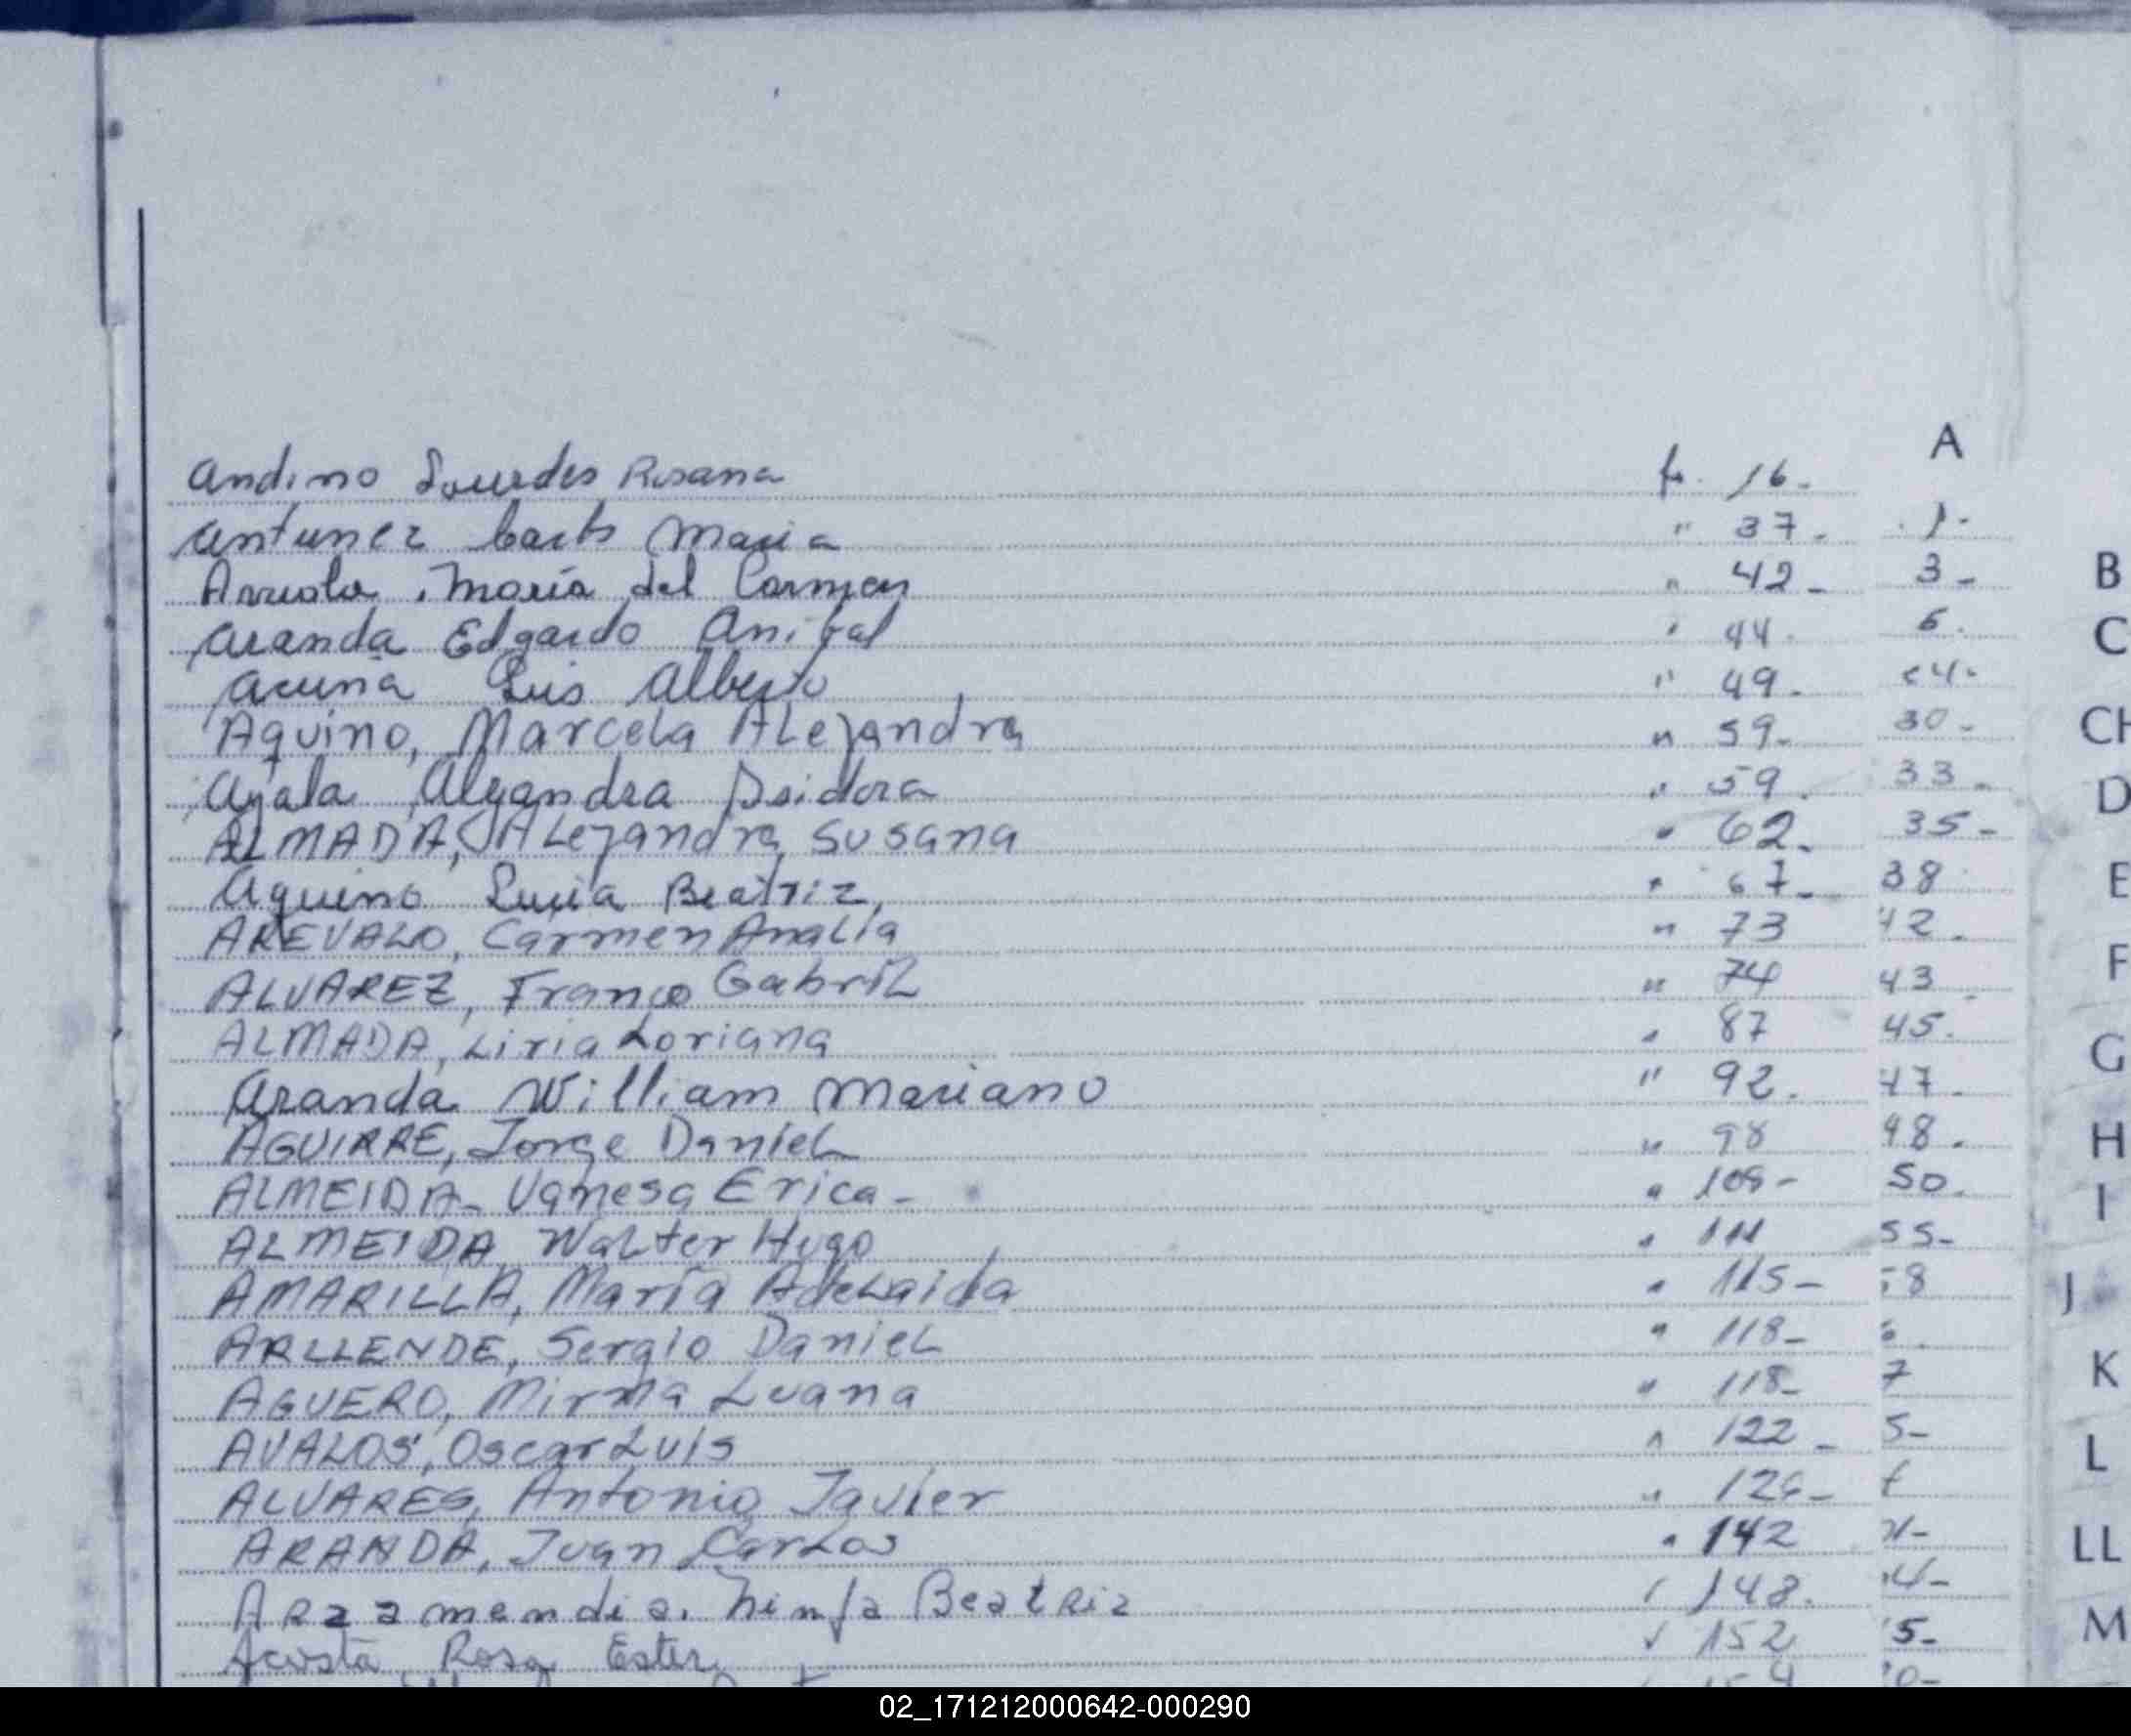 A
Andino Lourdes Rosana fs. 16.
Antunez Carlos Maria " 37. 1-
Arriola, María del Carmen " 42- 3-
Aranda Edgardo Anibal " 44. 6.
Acuña Luis Alberto " 49.
B
C
Aquino, Marcela ALejandra " 59- 30-
CH
Ayala Alejandra Isidora " 59. 33-
D
ALMADA, ALejandra Susana " 62. 35-
Aquino Lucia Beatriz, " 67- 38
E
AREVALO, Carmen AnaLía " 73 42.
F
ALVAREZ, Franco GabriL " 74 43
ALMADA, Liria Loriana " 87 45.
G
Aranda William Mariano " 92. 47-
AGUIRRE, Jorge DanieL " 98 48.
H
ALMEIDA- Vanesa Erica- " 109- 50.
I
ALMEIDA, WaLter Hugo " 111 55-
AMARILLA, María AdeLaida " 115-
J
ARLLENDE, Sergio DanieL " 118-
K
AGUERO, Mirma Luana " 118- 7
AVALOS, Oscar Luis " 122- 5-
L
ALVARES, Antonio Javier " 126-
ARANDA, Juan CarLos " 142
LL
Arzamendia. Ninfa Beatriz " 148.
M
Acosta, Rosa Ester, " 152 5-
02_171212000642-000290